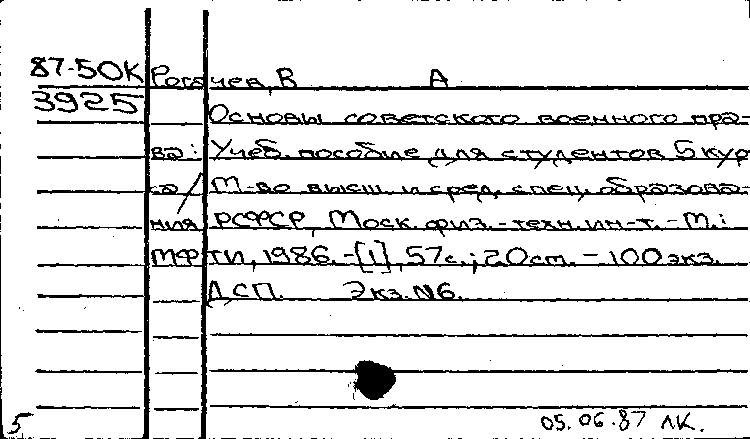 87-50К Рогачев, В А
3925 Основы советского военного пра-
ва: Учеб. пособие для студентов 5 кур-
са / М-во высш. и сред. спец. образова-
ния РСФСР, Моск. физ.-техн. ин-т. - М.:
МФТИ, 1986. - [1], 57с.; 20 см. - 100 экз.
ДСП. Экз. №6.
5 05.06.87 ЛК.